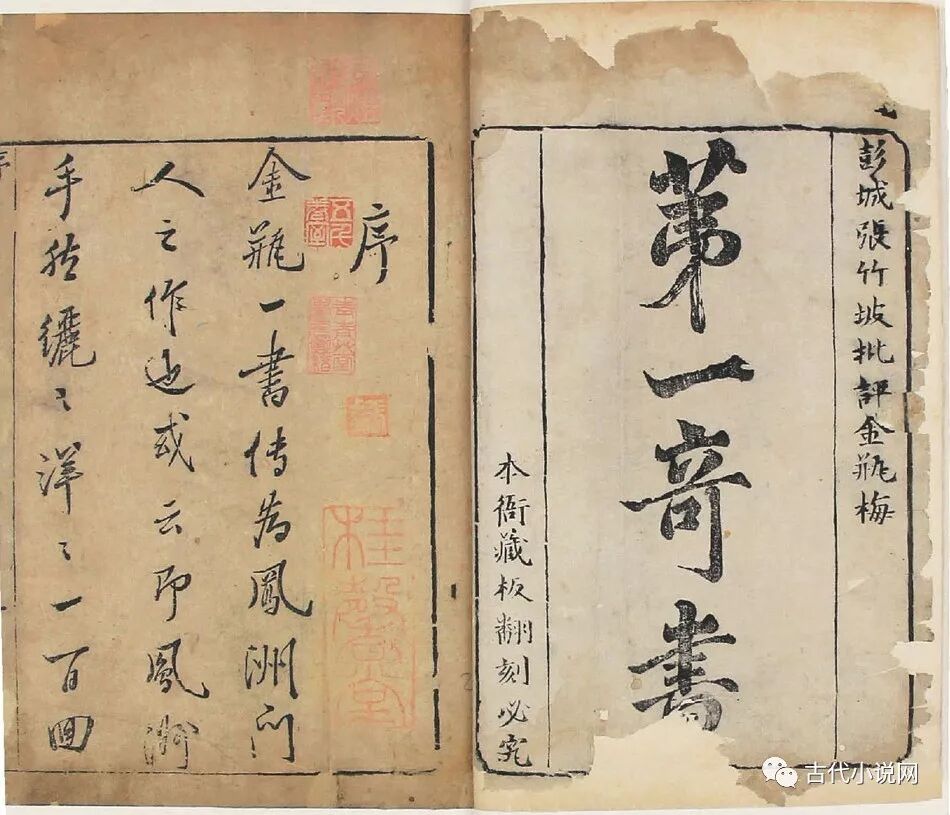 彭城張竹坡批評金瓶梅
第一奇書
本衙藏板翻刻必究
序
金瓶一書传為鳳洲门
人之作也或云即鳳洲
手然纚〻洋〻一百回
古代小说网